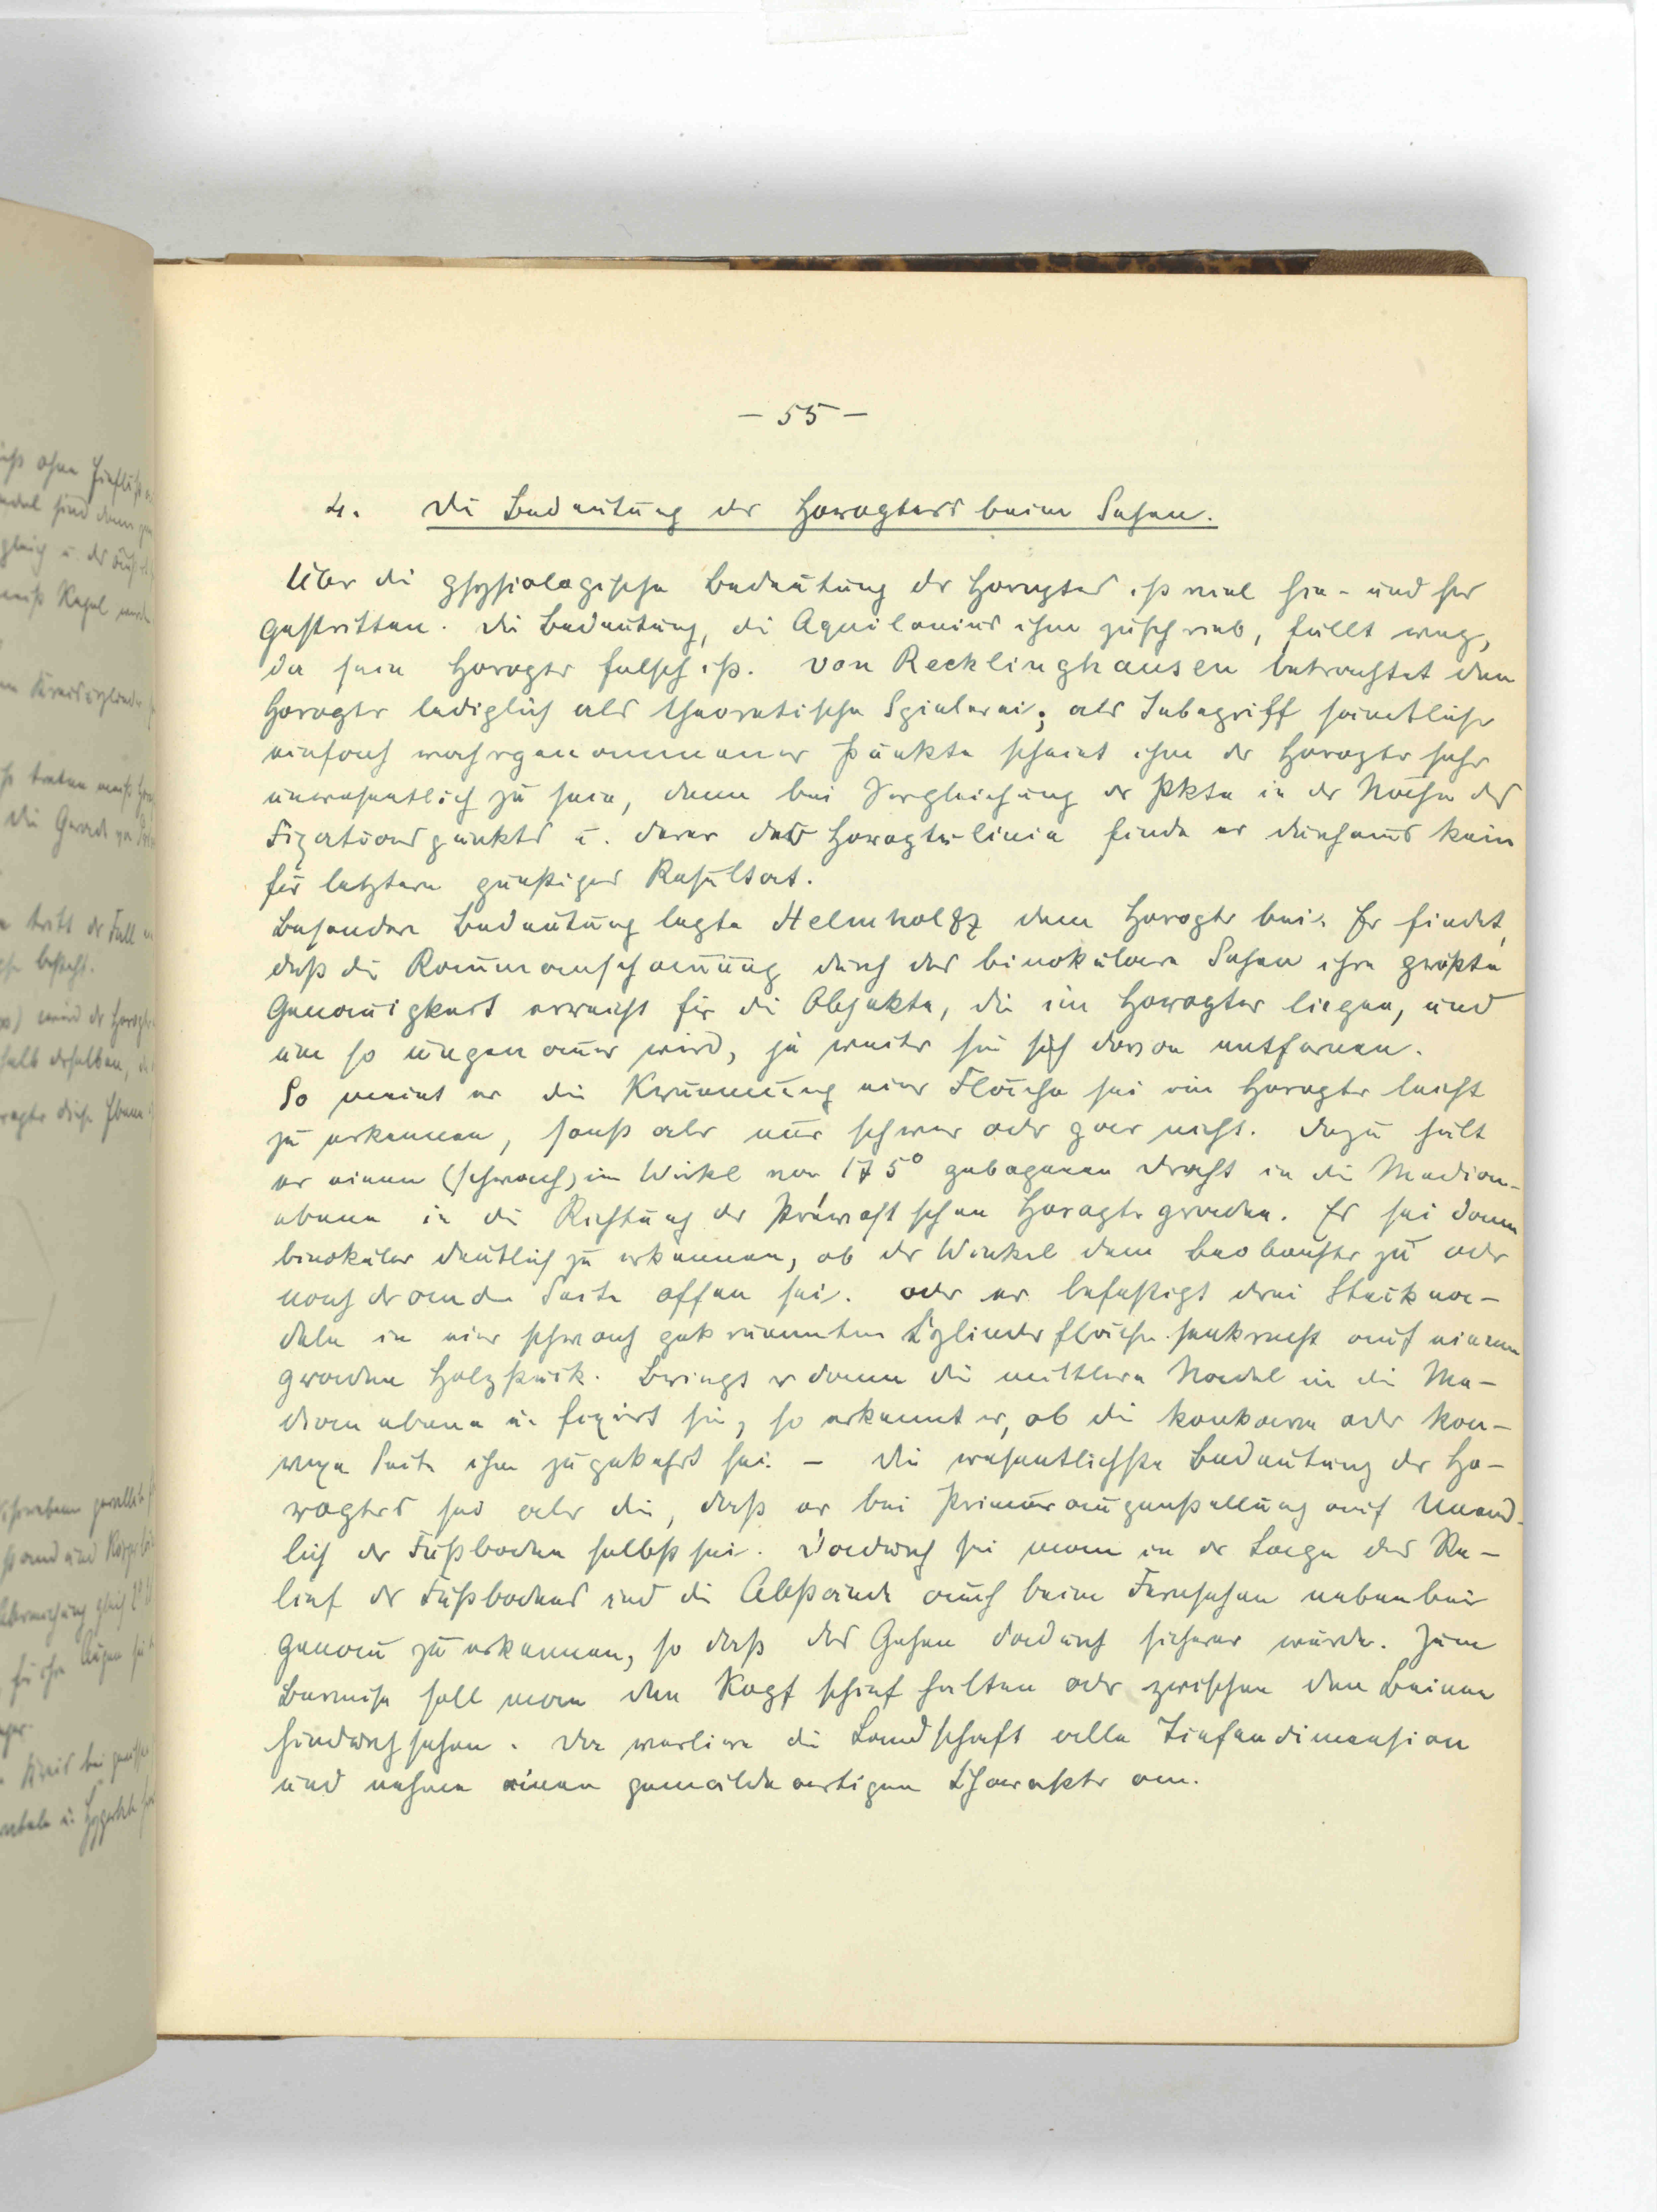 - 55 -
4. Die Bedeutung des Horopters beim Sehen.
Über die physiologische Bedeutung des Horopters ist viel hin- und her
gestritten. Die Bedeutung, die Aquilonius ihm zuschrieb, fällt weg,
da sein Horopter falsch ist. von Recklinghausen betrachtet den
Horopter lediglich als theoretische Spielerei; als Inbegriff sämtlicher
einfach wahrgenommener Punkte scheint ihm der Horopter sehr
unwesentlich zu sein, denn bei Vergleichung der Pkte in der Nähe des
Fixationspunktes u. derer der Horopterlinie finde er durchaus kein
für letztere günstiges Resultat.
Besondere Bedeutung legte Helmholtz dem Horopter bei. Er findet,
daß die Raumanschauung durch das binokulare Sehen ihre größte
Genauigkeit erreicht für die Objekte, die im Horopter liegen, und
um so ungenauer wird, je weiter sie sich davon entfernen.
So meint er die Krümmung einer Fläche sei im Horopter leicht
zu erkennen, sonst aber nur schwer oder gar nicht. Dazu hält
er einen (schwach) im Winkel von 175° gebogenen Draht in die Median-
ebene in die Richtung der Prévostschen Horoptergeraden. Er sei dann
binokular deutlich zu erkennen, ob der Winkel dem Beobachter zu oder
nach der andern Seite offen sei. oder er befestigt drei Steckna-
deln in einer schwach gekrümmten Cylinderfläche senkrecht auf einem
geraden Holzstück. Bringt er dann die mittlere Nadel in die Me-
dianebene u. fixirt sie, so erkennt er, ob die konkave oder kon-
vexe Seite ihm zugekehrt sei. - Die wesentlichste Bedeutung des Ho-
ropters sei aber die, daß er bei Primäraugenstellung auf Unend-
lich der Fußboden selbst sei. Dadurch sei man in der Lage das Re-
lief des Fußbodens und die Abstände auch beim Fernsehen nebenbei
genau zu erkennen, so daß das Gehen dadurch sicherer würde. Zum
Beweise soll man den Kopf schief halten oder zwischen den Beinen
hindurchsehen. Da verliere die Landschaft alle Tiefendimension
und nehme einen gemäldeartigen Charakter an.